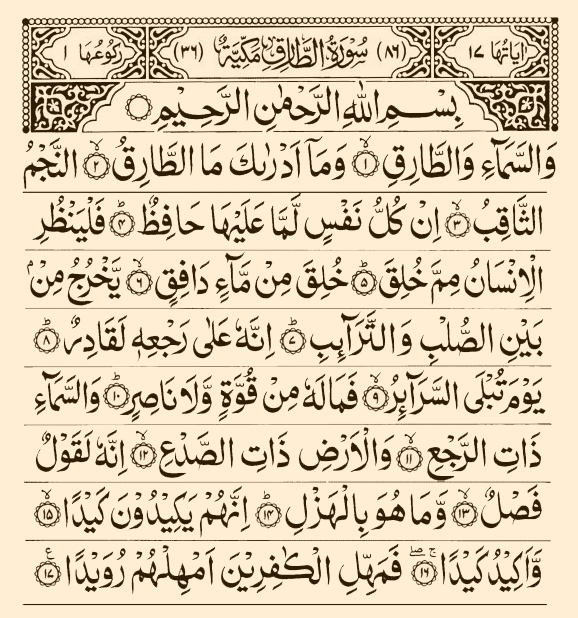 اٰیَاتُهَا ۱۷ (۸۶) سُوْرَةُ الطَّارِقِ مَكِّیَّةٌ (۳۶) رُكُوْعُهَا ۱
بِسْمِ اللّٰهِ الرَّحْمٰنِ الرَّحِیْمِ
وَالسَّمَآءِ وَالطَّارِقِ ۙ﴿۱﴾ وَمَاۤ اَدْرٰىكَ مَا الطَّارِقُ ۙ﴿۲﴾ النَّجْمُ
الثَّاقِبُ ۙ﴿۳﴾ اِنْ كُلُّ نَفْسٍ لَّمَّا عَلَیْهَا حَافِظٌ ؕ﴿۴﴾ فَلْیَنْظُرِ
الْاِنْسَانُ مِمَّ خُلِقَ ؕ﴿۵﴾ خُلِقَ مِنْ مَّآءٍ دَافِقٍ ۙ﴿۶﴾ یَّخْرُجُ مِنْۢ
بَیْنِ الصُّلْبِ وَالتَّرَآئِبِ ؕ﴿۷﴾ اِنَّهٗ عَلٰی رَجْعِهٖ لَقَادِرٌ ؕ﴿۸﴾
یَوْمَ تُبْلَی السَّرَآئِرُ ۙ﴿۹﴾ فَمَا لَهٗ مِنْ قُوَّةٍ وَّلَا نَاصِرٍ ؕ﴿۱۰﴾ وَالسَّمَآءِ
ذَاتِ الرَّجْعِ ۙ﴿۱۱﴾ وَالْاَرْضِ ذَاتِ الصَّدْعِ ۙ﴿۱۲﴾ اِنَّهٗ لَقَوْلٌ
فَصْلٌ ۙ﴿۱۳﴾ وَّمَا هُوَ بِالْهَزْلِ ؕ﴿۱۴﴾ اِنَّهُمْ یَكِیْدُوْنَ كَیْدًا ۙ﴿۱۵﴾
وَّاَكِیْدُ كَیْدًا ۚۖ﴿۱۶﴾ فَمَهِّلِ الْكٰفِرِیْنَ اَمْهِلْهُمْ رُوَیْدًا ﴿۱۷﴾ ع